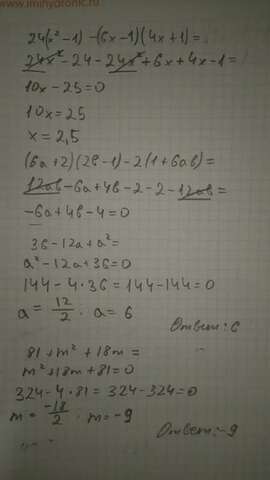 www.imhydronic.ru
24(x²-1) -(6x-1)(4x+1)=
24x²-24-24x²+6x+4x-1=
10x-25=0
10x=25
x=2,5
(6a+2)(2в-1)-2(1+6aв)=
12aв-6a+4в-2-2-12aв=
-6a+4в-4=0
36-12a+a²=
a²-12a+36=0
144-4·36=144-144=0
a=12/2. a=6
Ответ: 6
81+m²+18m=
m²+18m+81=0
324-4·81=324-324=0
m=-18/2. m=-9
Ответ:-9